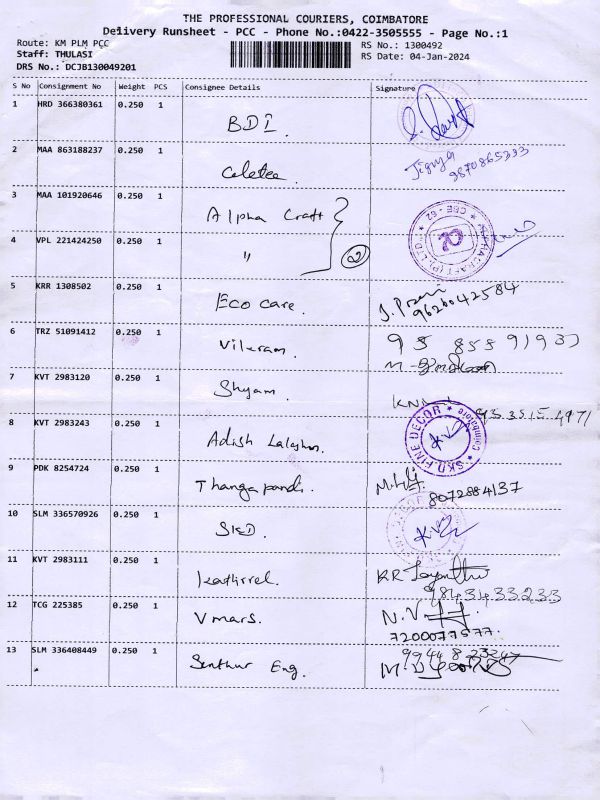 THE PROFESSIONAL COURIERS, COIMBATORE
Delivery Runsheet - PCC - Phone No.:0422-3505555 - Page No.:1
Route: KM PLM PCC
RS No.: 1300492
Staff: THULASI
RS Date: 04-Jan-2024
DRS No.: DCJB130049201
S No Consignment No Weight PCS Consignee Details Signature
1 HRD 366380361 0.250 1
BDI.
2 MAA 863188237 0.250 1
Jignya
9870865333
3 MAA 101920646 0.250 1
Alpha Craft
4 VPL 221424250 0.250 1
" 2
CBE - 62
5 KRR 1308502 0.250 1
Eco care. 9626042584
6 TRZ 51091412 0.250 1
Vikram
7 KVT 2983120 0.250 1
Shyam
8 KVT 2983243 0.250 1
Adish
SKD FINE DECOR
Coimbatore
9 PDK 8254724 0.250 1
Thangapandi.
8072884137
10 SLM 336570926 0.250 1
SKD.
11 KVT 2983111 0.250 1
Kathirvel.
9843433233
12 TCG 225385 0.250 1
Vmars. N.V
7200077577
13 SLM 336408449 0.250 1
Senthur Eng.